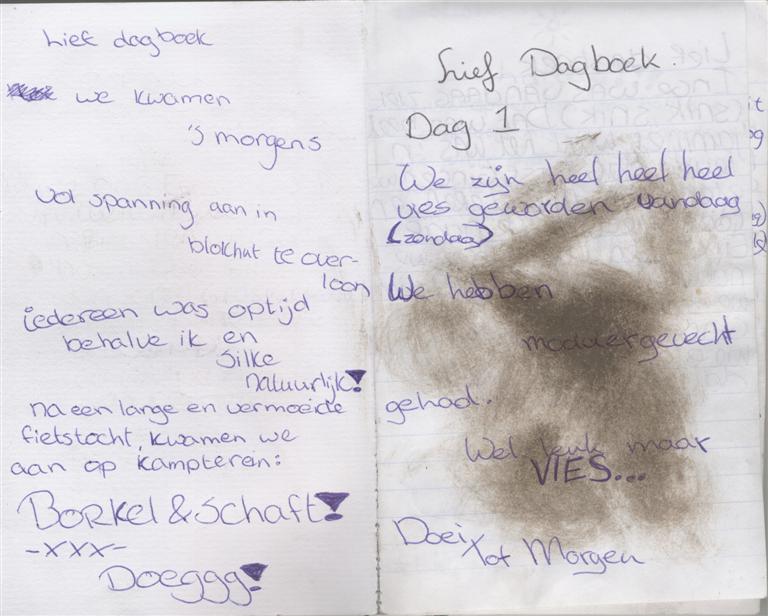 Lief dagboek
we kwamen
's morgens
vol spanning aan in
blokhut te over-
loon
iedereen was optijd
behalve ik en
Silke
natuurlijk!
na een lange en vermoeide
fietstocht, kwamen we
aan op kampterein:
Borkel & Schaft!
-xxx-
Doeggg!
Lief Dagboek.
Dag 1
We zijn heel heel heel
vies geworden vandaag
(zondag)
We hebben
moddergevecht
gehad.
Wel leuk maar
VIES...
Doei
Tot Morgen